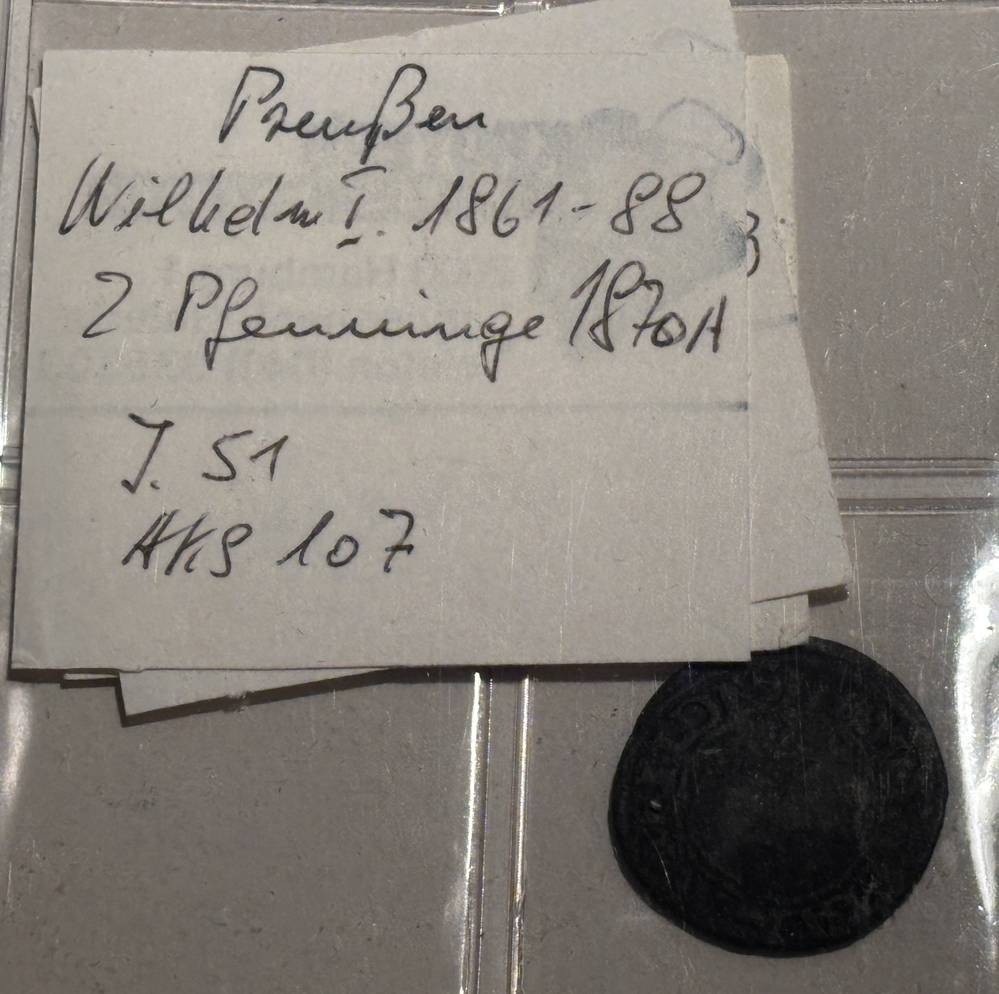 Preußen
Wilhelm I. 1861-88
2 Pfenninge 1870A
J. 51
AKS 107